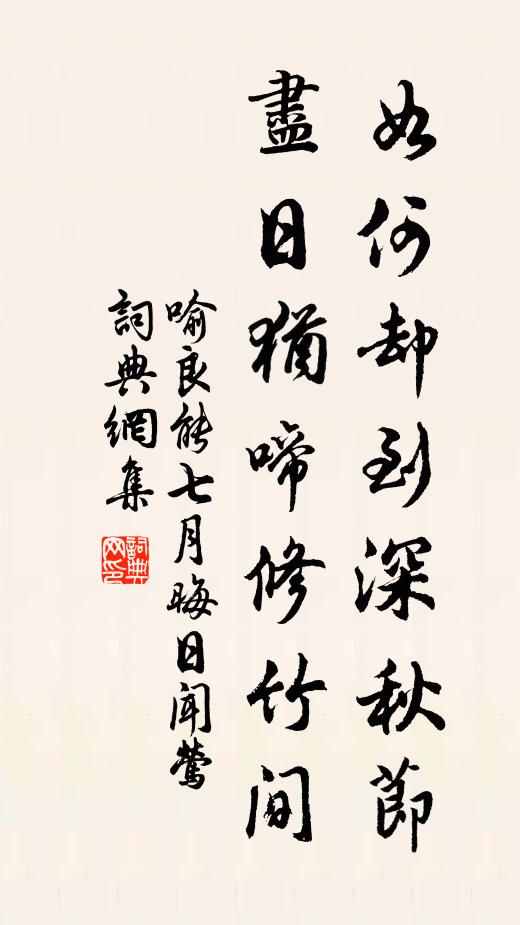 如何却到深秋節
盡日猶啼修竹间
喻良能七月晦日聞鶯
詞典網集
詞典網印